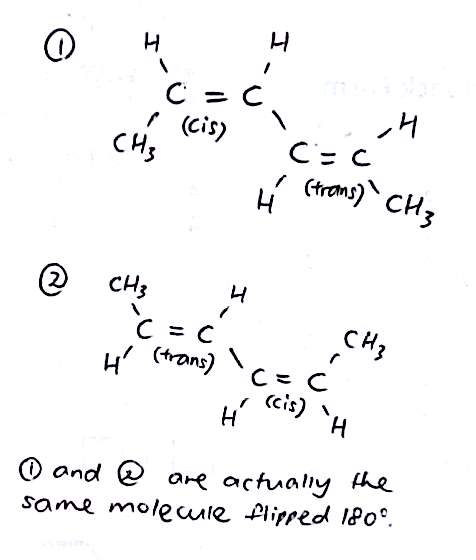 ①
H H
C = C
(cis)
CH₃ H
C = C
(trans)
H CH₃
②
CH₃ H
C = C
(trans) CH₃
H C = C
(cis)
H H
① and ② are actually the
same molecule flipped 180°.